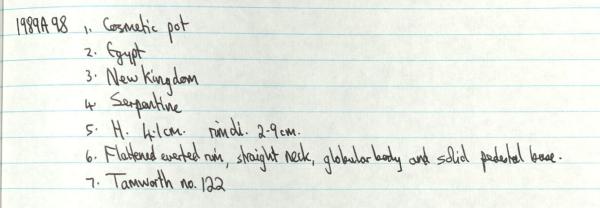 1989A98 1. Cosmetic pot
2. Egypt
3. New Kingdom
4. Serpentine
5. H. 4.1cm. rim di. 2-9cm.
6. Flattened everted rim, straight neck, globular body and solid pedestal base.
7. Tamworth no. 122